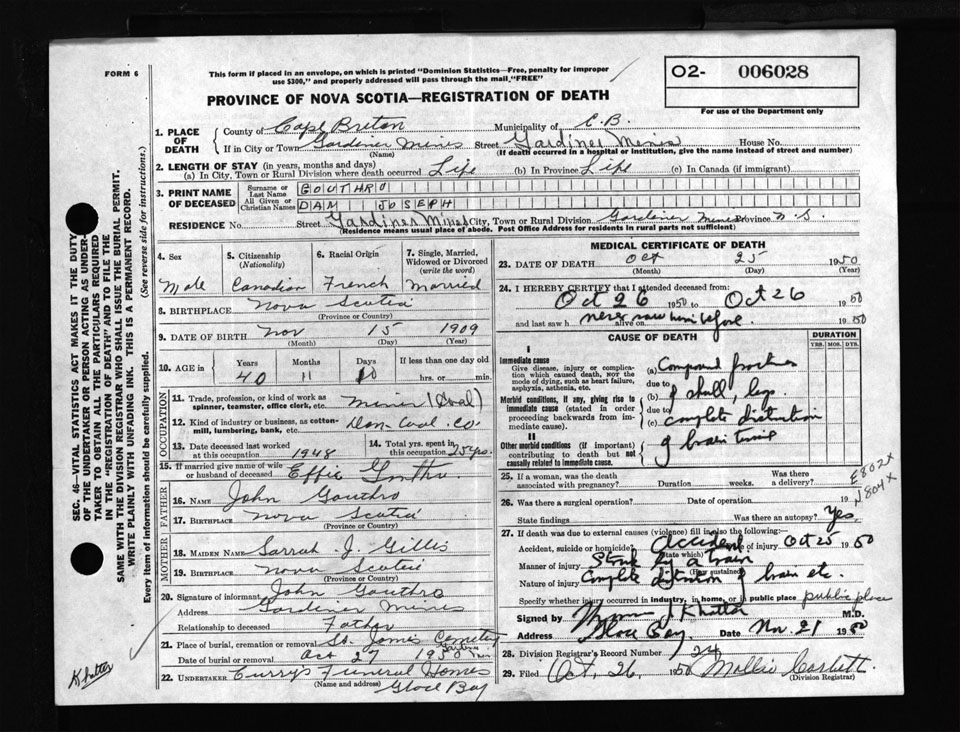 FORM 6
This form if placed in an envelope, on which is printed "Dominion Statistics—Free, penalty for improper
use $300," and properly addressed will pass through the mail "FREE"
PROVINCE OF NOVA SCOTIA—REGISTRATION OF DEATH
02- 006028
For use of the Department only
SEC. 46—VITAL STATISTICS ACT MAKES IT THE DUTY
OF THE UNDERTAKER OR PERSON ACTING AS UNDER-
TAKER TO OBTAIN ALL THE PARTICULARS REQUIRED
IN THE "REGISTRATION OF DEATH" AND TO FILE THE
SAME WITH THE DIVISION REGISTRAR WHO SHALL ISSUE THE BURIAL PERMIT.
WRITE PLAINLY WITH UNFADING INK. THIS IS A PERMANENT RECORD.
Every item of information should be carefully supplied. (See reverse side for instructions.)
Khatter
1. PLACE OF DEATH
County of Cape Breton Municipality of C.B.
If in City or Town Gardener Mines Street Gardiner Mines House No.
(Name) (If death occurred in a hospital or institution, give the name instead of street and number)
2. LENGTH OF STAY (in years, months and days)
(a) In City, Town or Rural Division where death occurred Life (b) In Province Life (c) In Canada (if immigrant)
3. PRINT NAME OF DECEASED
Surname or Last Name GOUTHRO
All Given or Christian Names DAM JOSEPH
RESIDENCE No. Street Gardiner Mines City, Town or Rural Division Gardiner Mines Province N.S.
(Residence means usual place of abode. Post Office Address for residents in rural parts not sufficient)
4. Sex
Male
5. Citizenship (Nationality)
Canadian
6. Racial Origin
French
7. Single, Married, Widowed or Divorced (write the word)
Married
8. BIRTHPLACE Nova Scotia
(Province or Country)
9. DATE OF BIRTH Nov 15 1909
(Month) (Day) (Year)
10. AGE in Years Months Days If less than one day old
40 11 10 hrs. or min.
OCCUPATION
11. Trade, profession, or kind of work as
spinner, teamster, office clerk, etc. Miner (Coal)
12. Kind of industry or business, as cotton-
mill, lumbering, bank, etc. Dom Coal Co.
13. Date deceased last worked at this occupation 1948
14. Total yrs. spent in this occupation 25 yrs.
15. If married give name of wife
or husband of deceased Effie
FATHER
16. NAME John Gouthro
17. BIRTHPLACE Nova Scotia
(Province or Country)
MOTHER
18. MAIDEN NAME Sarrah J. Gillis
19. BIRTHPLACE Nova Scotia
(Province or Country)
20. Signature of informant John Gouthro
Address Gardener Mines
Relationship to deceased Father
21. Place of burial, cremation or removal St. James Cemetery
Date of burial or removal Oct 27 1950
22. UNDERTAKER Curry's Funeral Homes
(Name and address) Glace Bay
MEDICAL CERTIFICATE OF DEATH
23. DATE OF DEATH Oct 25 1950
(Month) (Day) (Year)
24. I HEREBY CERTIFY that I attended deceased from:
Oct 26 1950 to Oct 26 1950
and last saw h alive on never saw him before 1950
CAUSE OF DEATH
DURATION
YRS. MOS. DYS.
I
Immediate cause
Give disease, injury or complication which caused death, not the mode of dying, such as heart failure, asphyxia, asthenia, etc.
(a) Compound fractures
due to
Morbid conditions, if any, giving rise to immediate cause (stated in order proceeding backwards from immediate cause).
(b) of skull, legs
due to
(c) complete
II
Other morbid conditions (if important) contributing to death but not causally related to immediate cause.
of brain
25. If a woman, was the death Was there
associated with pregnancy? Duration weeks. a delivery?
E802X
N804X
26. Was there a surgical operation? Date of operation 19
State findings Was there an autopsy? Yes
27. If death was due to external causes (violence) fill in also the following:
Accident, suicide or homicide Accident Date of injury Oct 25 1950
(State which)
Manner of injury Struck by a train
(How sustained)
Nature of injury Complete of brain etc.
Specify whether injury occurred in industry, in home, or in public place public place
Signed by Khatter M.D.
Address Glace Bay. Date Nov. 21 1950
28. Division Registrar's Record Number 24
29. Filed Oct. 26, 1950 Mollie Corbett.
(Division Registrar)